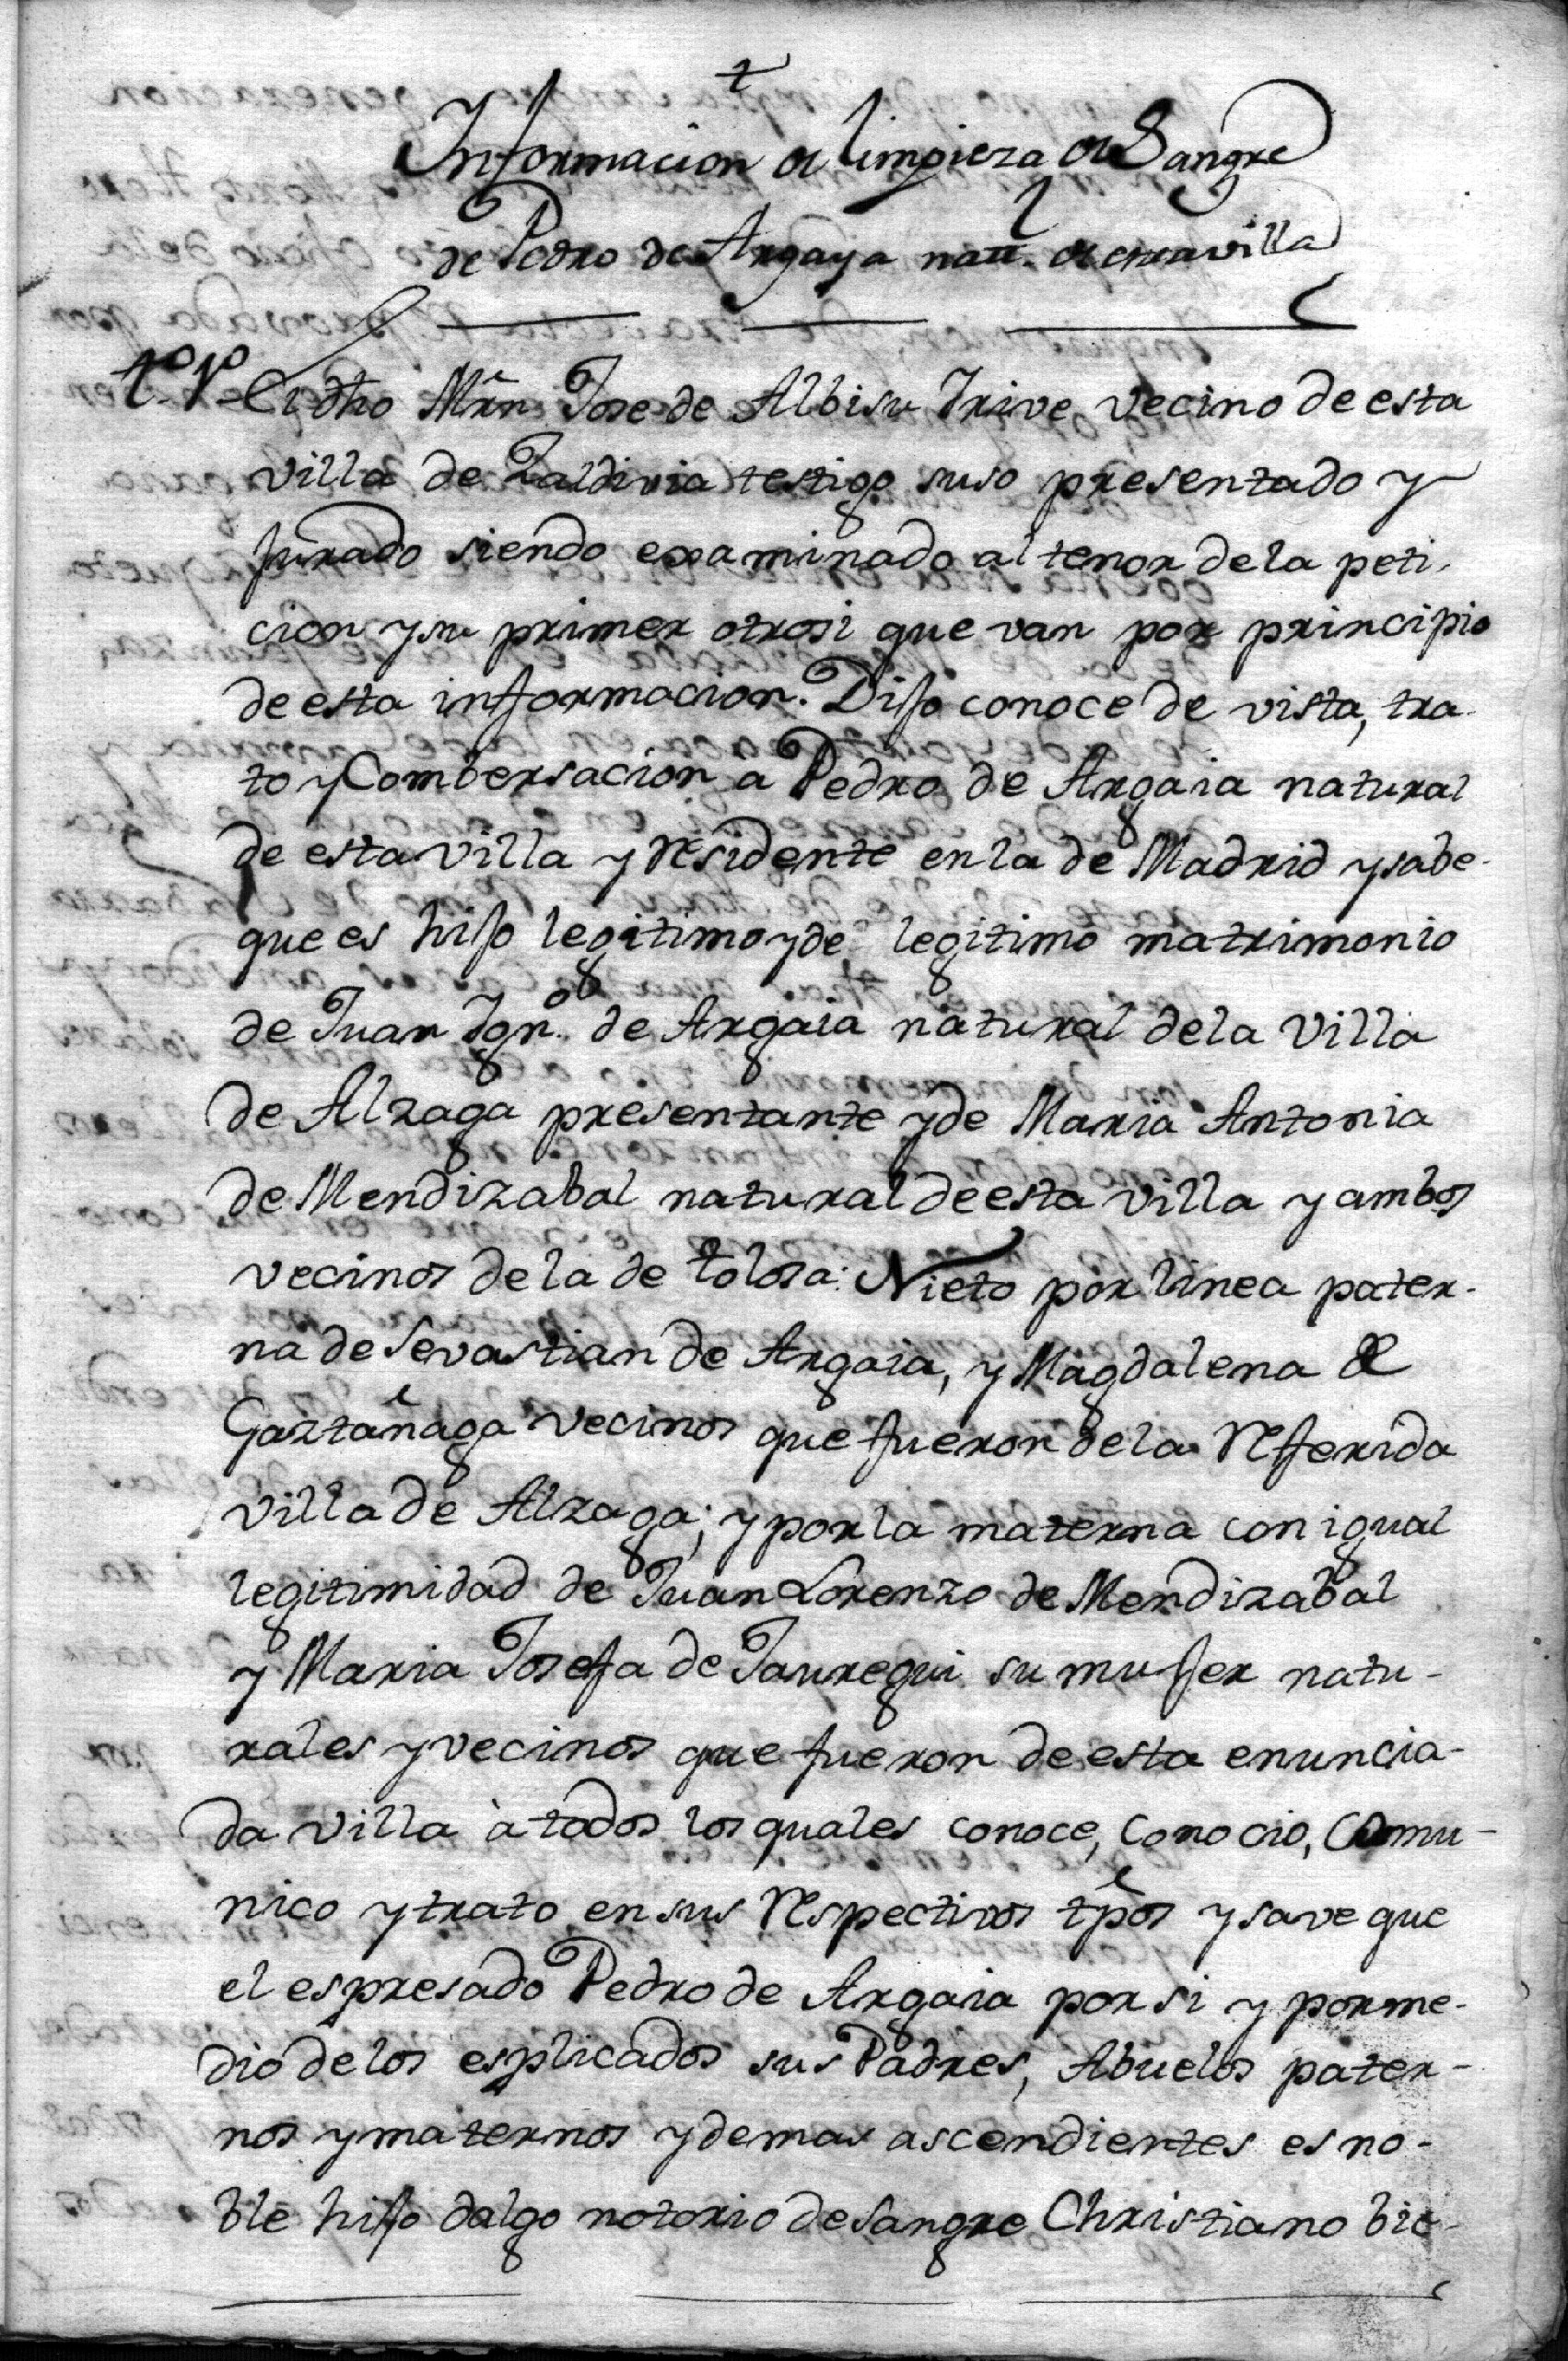 †
Informacion de limpieza de Sangre
de Pedro de Argaya natl. de esta villa
to. 1o. El dho Mrn Jose de Albisu Irive vecino de esta
villa de Zaldivia testigo suso presentado y
jurado siendo examinado al tenor de la peti-
cion y su primer otrosi que van por principio
de esta informacion. Dijo conoce de vista, tra-
to y Combersacion a Pedro de Argaia natural
de esta villa y residente en la de Madrid y sabe
que es hijo legitimo y de legitimo matrimonio
de Juan Ign.o de Argaia natural de la Villa
de Alzaga presentante y de Maria Antonia
de Mendizabal natural de esta villa y ambos
vecinos de la de tolosa: Nieto por linea pater-
na de Sevastian de Argaia, y Magdalena de
Gaztañaga vecinos que fueron de la referida
villa de Alzaga; y por la materna con igual
legitimidad de Juan Lorenzo de Mendizabal
y Maria Josefa de Jauregui su mujer natu-
rales y vecinos que fueron de esta enuncia-
da villa à todos los quales conoce, Conocio, Comu-
nico y trato en sus respectivos tpos y save que
el espresado Pedro de Argaia por si y por me-
dio de los esplicados sus Padres, Abuelos pater-
nos y maternos y demas ascendientes es no-
ble hijo dalgo notorio de Sangre Christiano bie-